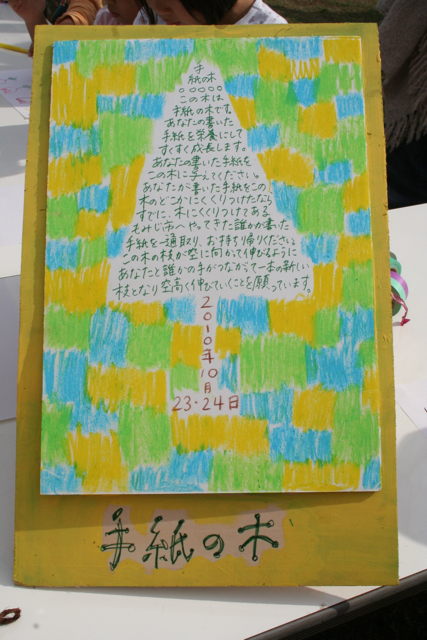 手
紙の木
○○○○○
この木は
手紙の木です。
あなたの書いた
手紙を栄養にして
すくすく成長します。
あなたの書いた手紙を
この木に与えてください。
あなたが書いた手紙をこの
木のどこかにくくりつけたなら
すでに、木にくくりつけてある
もみじ市へやってきた誰かが書いた
手紙を一通取り、お持ち帰りください。
この木の枝が空に向かって伸びるように
あなたと誰かの手がつながって一本の新しい
枝となり空高く伸びていくことを願っています。
2010年10月
23・24日
手紙の木